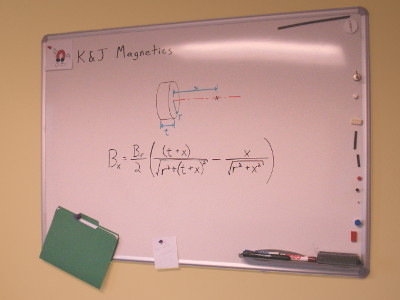 K&J Magnetics
x
x
r
t
Bₓ = Bᵣ/2 ( (t+x)/√(r²+(t+x)²) − x/√(r²+x²) )